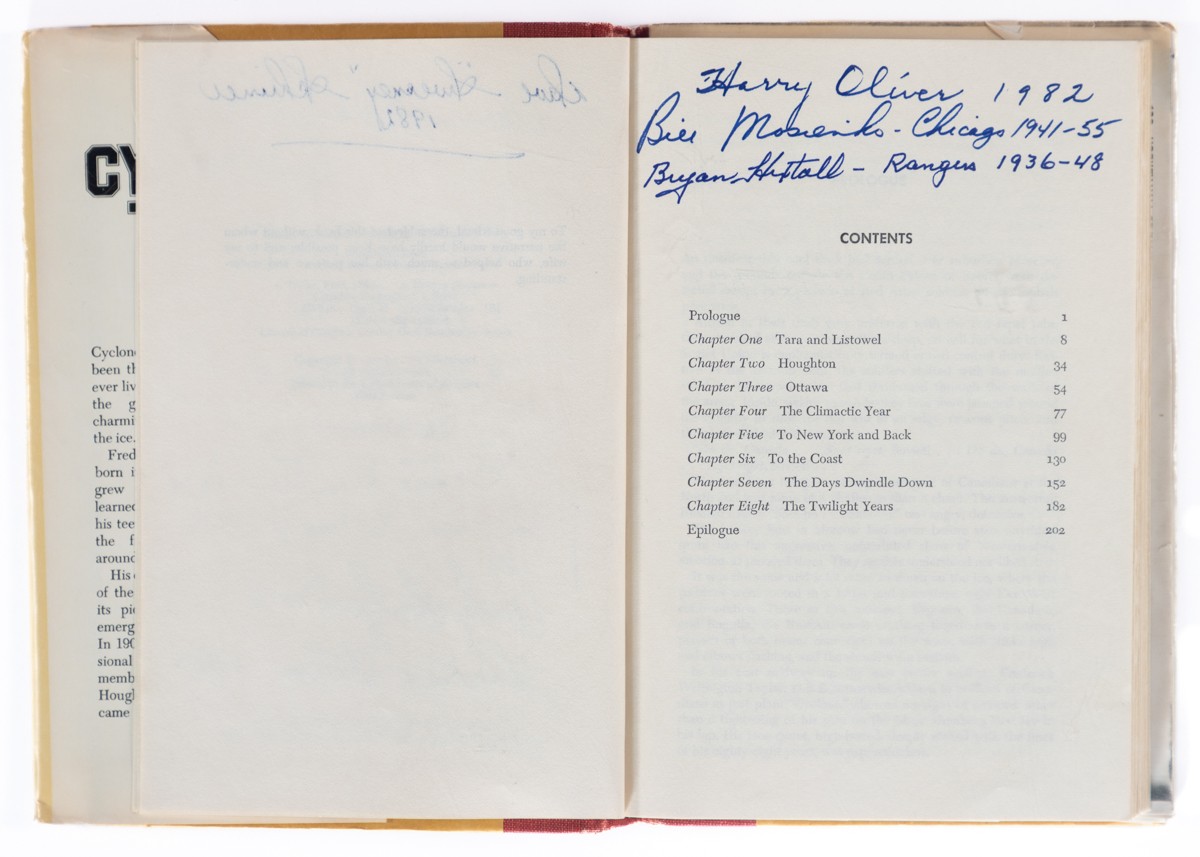 CY
Cyclon
been th
ever liv
the g
charmi
the ice.
Fred
born i
grew
learned
his tee
the f
around
His
of the
its pi
emerg
In 190
sional
memb
Hough
came
1982
Harry Oliver 1982
Bill Mosienko - Chicago 1941-55
Bryan Hextall - Rangers 1936-48
CONTENTS
Prologue 1
Chapter One Tara and Listowel 8
Chapter Two Houghton 34
Chapter Three Ottawa 54
Chapter Four The Climactic Year 77
Chapter Five To New York and Back 99
Chapter Six To the Coast 130
Chapter Seven The Days Dwindle Down 152
Chapter Eight The Twilight Years 182
Epilogue 202